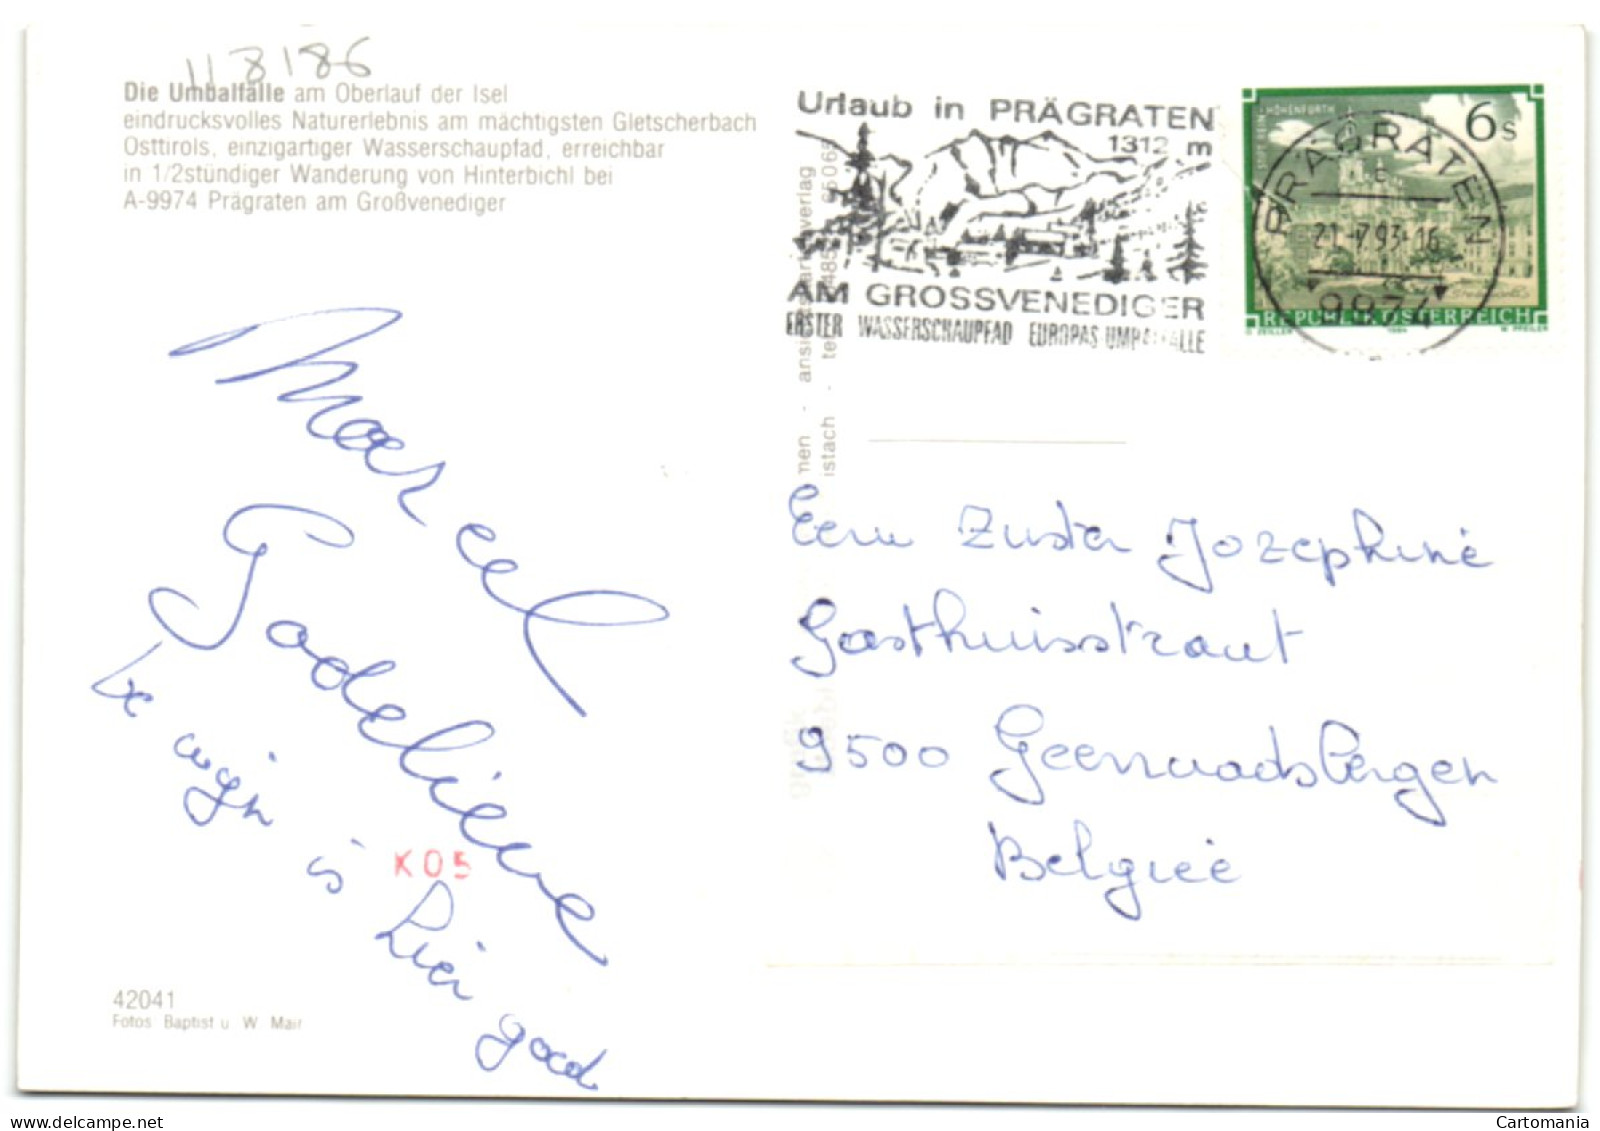 118186
Die Umbalfälle am Oberlauf der Isel
eindrucksvolles Naturerlebnis am mächtigsten Gletscherbach
Osttirols, einzigartiger Wasserschaupfad, erreichbar
in 1/2stündiger Wanderung von Hinterbichl bei
A-9974 Prägraten am Großvenediger
Urlaub in PRÄGRATEN
1312 m
AM GROSSVENEDIGER
ERSTER WASSERSCHAUPFAD EUROPAS UMBALFÄLLE
6s
REPUBLIK ÖSTERREICH
PRÄGRATEN
21.-7.93-16
9974
Marcel
Godelieve
De wijn is hier goed
K05
Eerw Zuster Jozephine
Gasthuisstraat
9500 Geeraadsbergen
Belgiee
42041
Fotos Baptist u. W. Mair
Cartomania